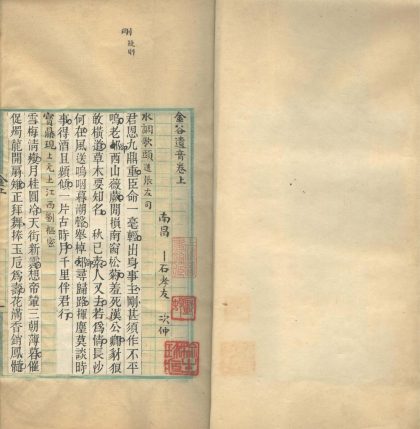 金谷遺音卷上
南昌 石孝友 次仲
水調歌頭 送張左司
君恩九鼎重臣命一毫輕出身事主剛甚須作不平
鳴老西山薇蕨閒南窗松菊羞死漢公卿豺狼
敢橫道草木要知名 秋已老人又去若爲情長沙
何在風送嗚咽暮潮聲舉棹却尋歸路揮麈莫談時
事得酒且頻傾一片古時月千里伴君行
寶鼎現 上元上江西劉樞密
雪梅清瘦月桂圓冷天街新霽想帝輦三朝薄暮催
促燭龍開扇雉正拜舞捧玉巵爲壽花滿香銷鳳髓